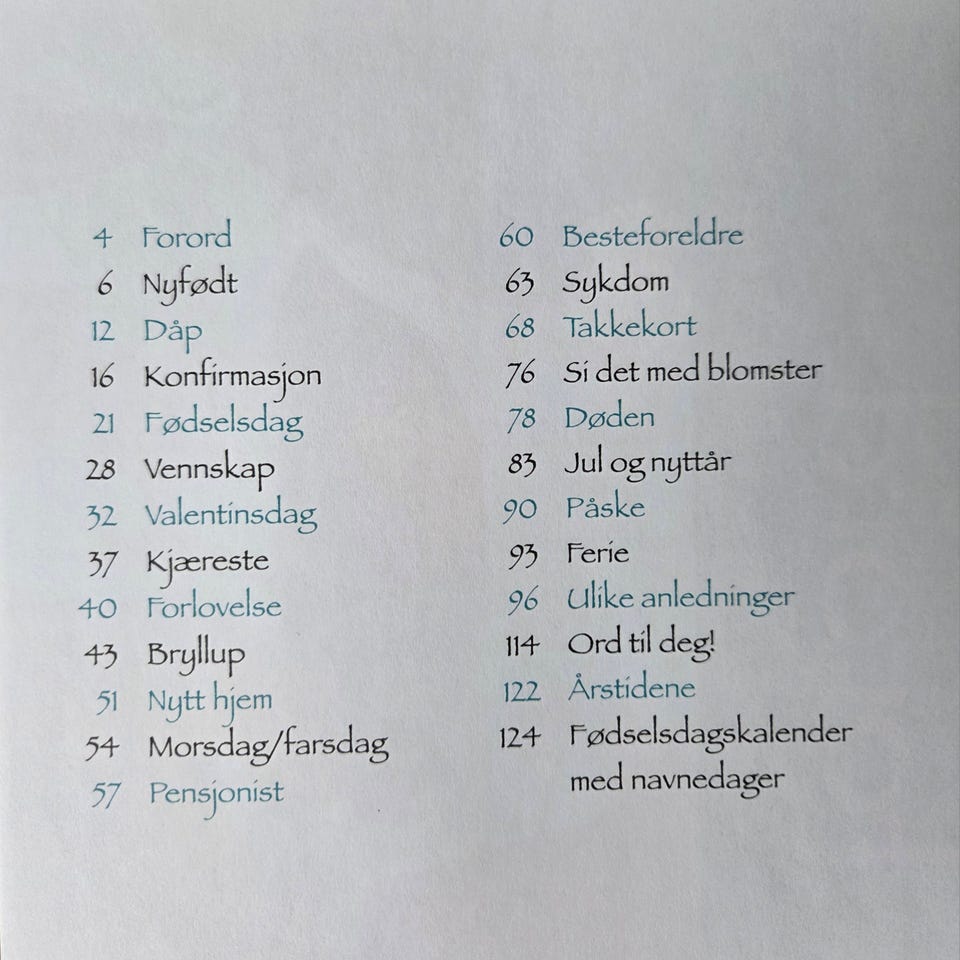 4 Forord
6 Nyfødt
12 Dåp
16 Konfirmasjon
21 Fødselsdag
28 Vennskap
32 Valentinsdag
37 Kjæreste
40 Forlovelse
43 Bryllup
51 Nytt hjem
54 Morsdag/farsdag
57 Pensjonist
60 Besteforeldre
63 Sykdom
68 Takkekort
76 Si det med blomster
78 Døden
83 Jul og nyttår
90 Påske
93 Ferie
96 Ulike anledninger
114 Ord til deg!
122 Årstidene
124 Fødselsdagskalender
med navnedager